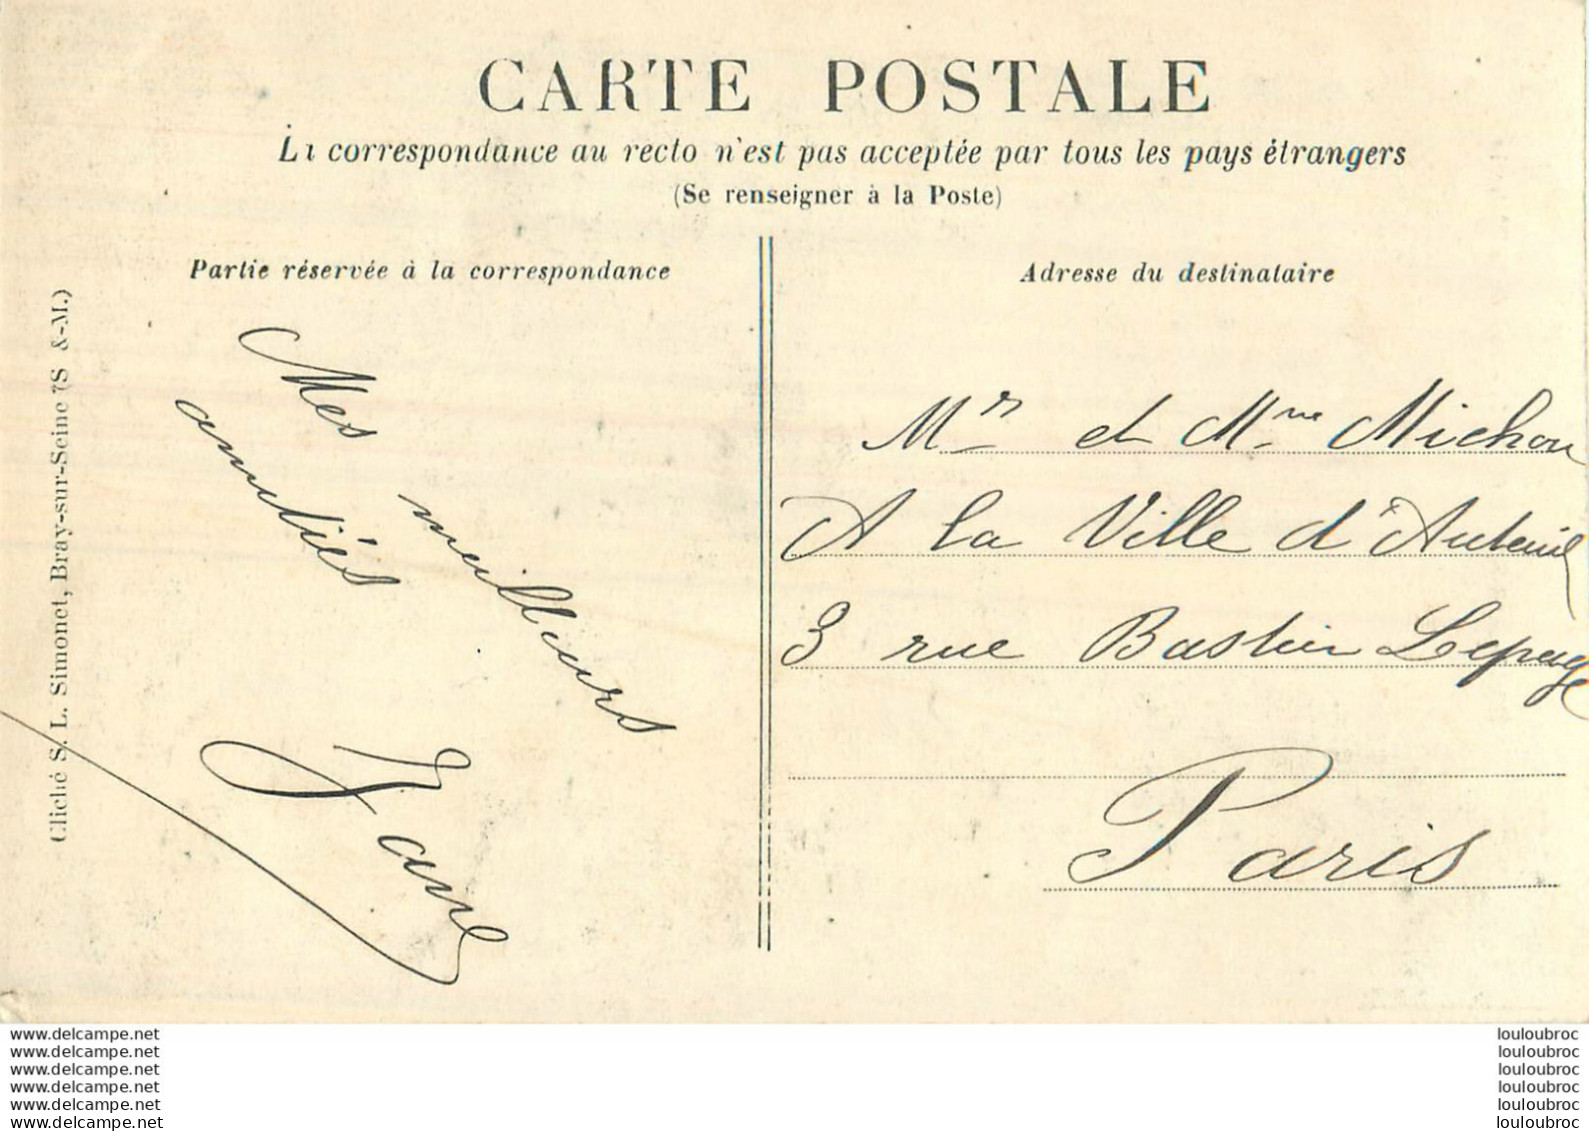 CARTE POSTALE
La correspondance au recto n'est pas acceptée par tous les pays étrangers
(Se renseigner à la Poste)
Partie réservée à la correspondance
Adresse du destinataire
Cliché S. L. Simonet, Bray-sur-Seine (S &-M.)
Mes meilleurs
amitiés
Jane
Mr et Mme Michon
A la Ville d'Auteuil
3 rue Bastien Lepage
Paris
www.delcampe.net
www.delcampe.net
www.delcampe.net
www.delcampe.net
www.delcampe.net
www.delcampe.net
louloubroc
louloubroc
louloubroc
louloubroc
louloubroc
louloubroc